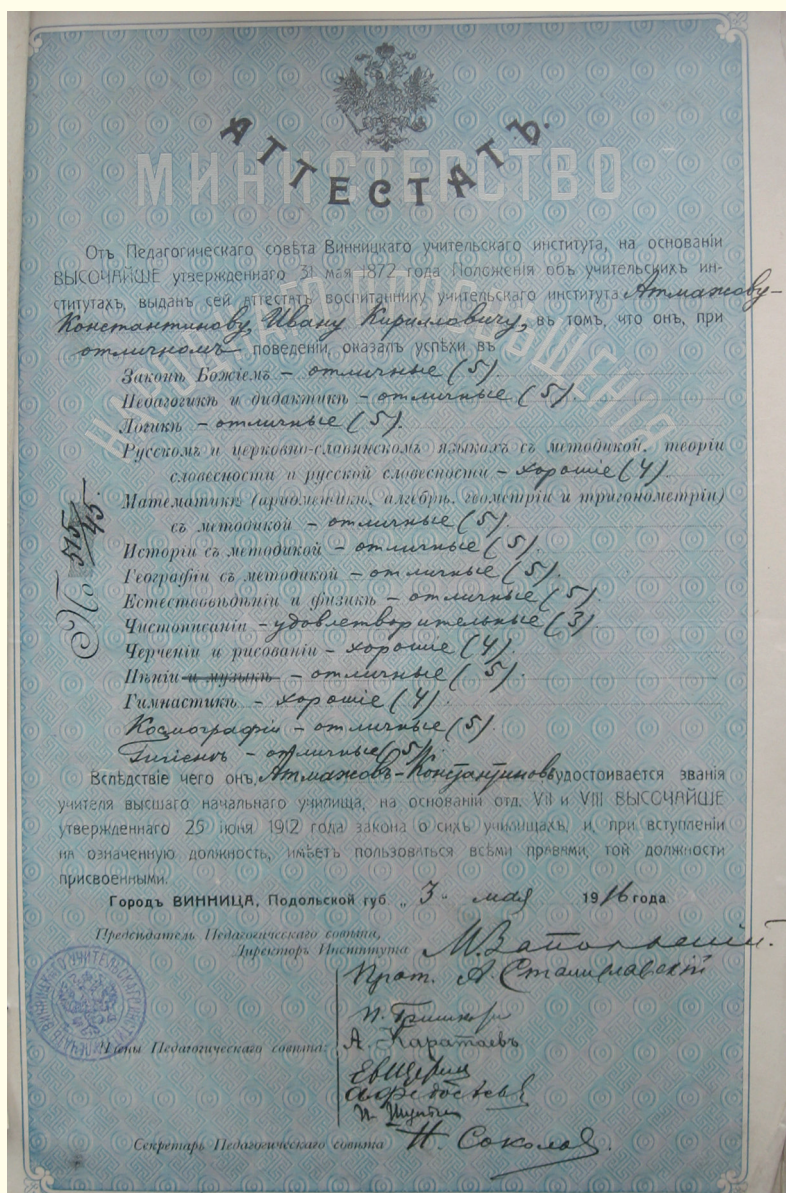 АТТЕСТАТЪ.
МИНИСТЕРСТВО
НАРОДНАГО ПРОСВѢЩЕНІЯ
Отъ Педагогическаго совѣта Винницкаго учительскаго института, на основаніи
ВЫСОЧАЙШЕ утвержденнаго 31 мая 1872 года Положенія объ учительскихъ ин-
ститутахъ, выданъ сей аттестатъ воспитаннику учительскаго института Атмажову-
Константинову, Ивану Кирилловичу, въ томъ, что онъ, при
отличномъ поведеніи, оказалъ успѣхи въ
Законѣ Божіемъ – отличные (5).
Педагогикѣ и дидактикѣ – отличные (5).
Логикѣ – отличные (5).
Русскомъ и церковно-славянскомъ языкахъ съ методикой, теоріи
словесности и русской словесности – хорошіе (4).
Математикѣ (ариѳметикѣ, алгебрѣ, геометріи и тригонометріи)
съ методикой – отличные (5).
Исторіи съ методикой – отличные (5).
Географіи съ методикой – отличные (5).
Естествовѣдѣніи и физикѣ – отличные (5).
Чистописаніи – удовлетворительные (3)
Черченіи и рисованіи – хорошіе (4).
Пѣніи и музыкѣ – отличные (5).
Гимнастикѣ – хорошіе (4)
Космографіи – отличные (5).
Гигіенѣ – отличные (5).
№ 515/45.
Вслѣдствіе чего онъ, Атмажовъ-Константиновъ удостоивается званія
учителя высшаго начальнаго училища, на основаніи отд. VII и VIII ВЫСОЧАЙШЕ
утвержденнаго 25 іюня 1912 года закона о сихъ училищахъ, и, при вступленіи
на означенную должность, имѣетъ пользоваться всѣми правами, той должности
присвоенными.
Городъ ВИННИЦА, Подольской губ. „ 3 “ мая 1916 года
Предсѣдатель Педагогическаго совѣта,
Директоръ Института М. Запольскій.
Прот. А Станиславскій
А. Каратаевъ
Члены Педагогическаго совѣта:
Секретарь Педагогическаго совѣта Н. Соколов
ПЕЧАТЬ ВИННИЦКАГО УЧИТЕЛЬСКАГО ИНСТИТУТА